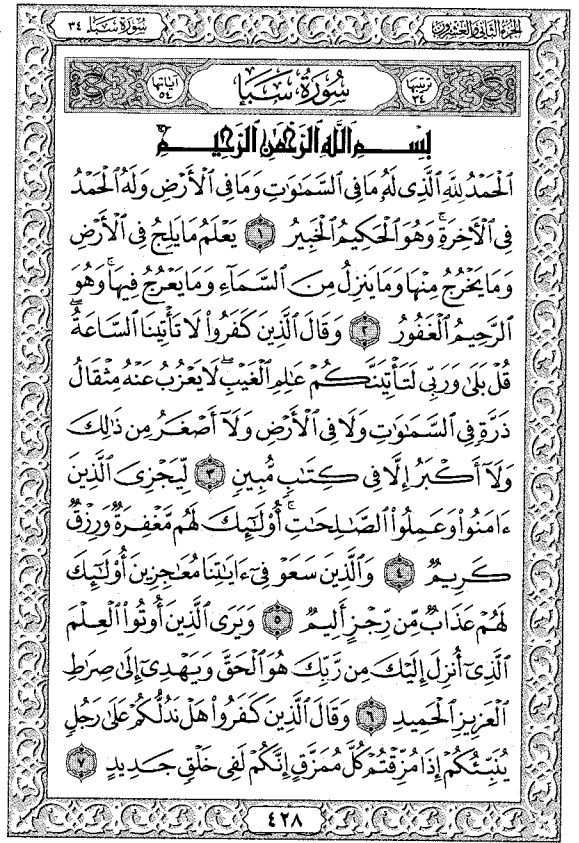 سُورَةُ سَبَإ ٣٤
الجُزءُ الثَّانِي وَالعِشْرُونَ
ترتيبها ٣٤
سُورَةُ سَبَإ
آياتها ٥٤
بِسْمِ ٱللَّهِ ٱلرَّحْمَٰنِ ٱلرَّحِيمِ
ٱلْحَمْدُ لِلَّهِ ٱلَّذِى لَهُۥ مَا فِى ٱلسَّمَٰوَٰتِ وَمَا فِى ٱلْأَرْضِ وَلَهُ ٱلْحَمْدُ
فِى ٱلْءَاخِرَةِ ۚ وَهُوَ ٱلْحَكِيمُ ٱلْخَبِيرُ ١ يَعْلَمُ مَا يَلِجُ فِى ٱلْأَرْضِ
وَمَا يَخْرُجُ مِنْهَا وَمَا يَنزِلُ مِنَ ٱلسَّمَآءِ وَمَا يَعْرُجُ فِيهَا ۚ وَهُوَ
ٱلرَّحِيمُ ٱلْغَفُورُ ٢ وَقَالَ ٱلَّذِينَ كَفَرُوا۟ لَا تَأْتِينَا ٱلسَّاعَةُ ۖ
قُلْ بَلَىٰ وَرَبِّى لَتَأْتِيَنَّكُمْ عَٰلِمِ ٱلْغَيْبِ ۖ لَا يَعْزُبُ عَنْهُ مِثْقَالُ
ذَرَّةٍ فِى ٱلسَّمَٰوَٰتِ وَلَا فِى ٱلْأَرْضِ وَلَآ أَصْغَرُ مِن ذَٰلِكَ
وَلَآ أَكْبَرُ إِلَّا فِى كِتَٰبٍ مُّبِينٍ ٣ لِّيَجْزِىَ ٱلَّذِينَ
ءَامَنُوا۟ وَعَمِلُوا۟ ٱلصَّٰلِحَٰتِ ۚ أُو۟لَٰٓئِكَ لَهُم مَّغْفِرَةٌ وَرِزْقٌ
كَرِيمٌ ٤ وَٱلَّذِينَ سَعَوْ فِىٓ ءَايَٰتِنَا مُعَٰجِزِينَ أُو۟لَٰٓئِكَ
لَهُمْ عَذَابٌ مِّن رِّجْزٍ أَلِيمٌ ٥ وَيَرَى ٱلَّذِينَ أُوتُوا۟ ٱلْعِلْمَ
ٱلَّذِىٓ أُنزِلَ إِلَيْكَ مِن رَّبِّكَ هُوَ ٱلْحَقَّ وَيَهْدِىٓ إِلَىٰ صِرَٰطِ
ٱلْعَزِيزِ ٱلْحَمِيدِ ٦ وَقَالَ ٱلَّذِينَ كَفَرُوا۟ هَلْ نَدُلُّكُمْ عَلَىٰ رَجُلٍ
يُنَبِّئُكُمْ إِذَا مُزِّقْتُمْ كُلَّ مُمَزَّقٍ إِنَّكُمْ لَفِى خَلْقٍ جَدِيدٍ ٧
٤٢٨